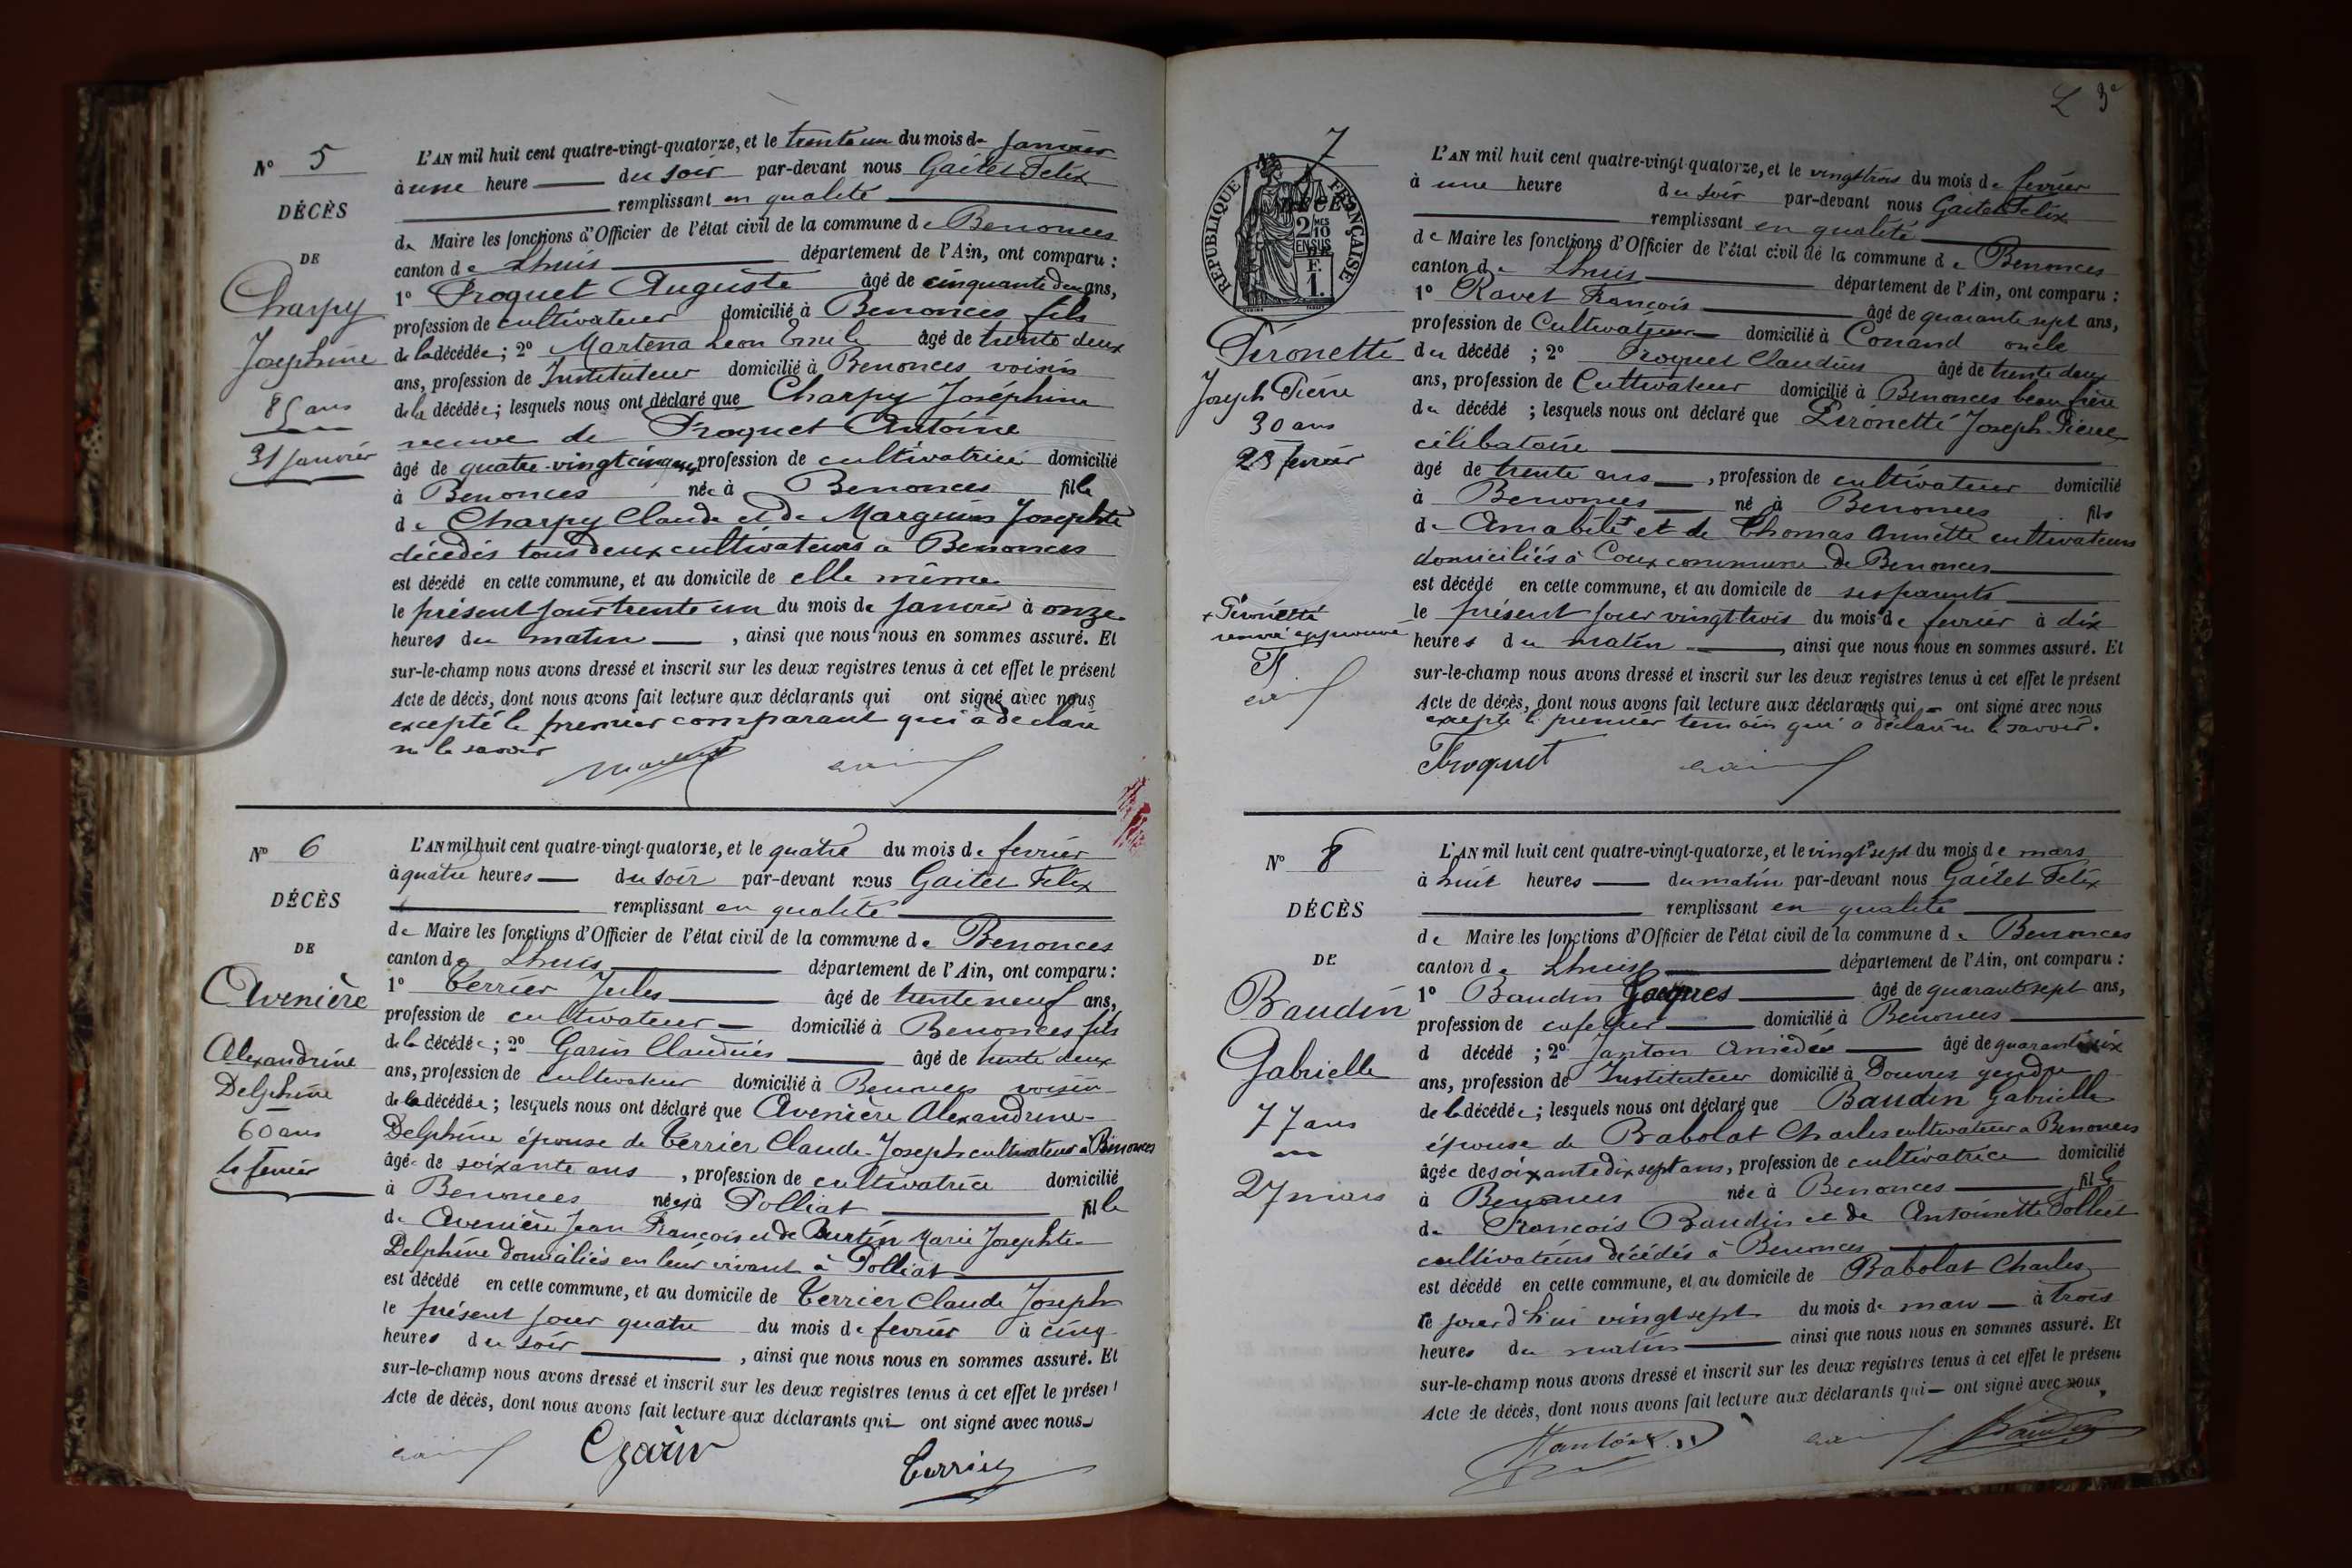 N° 5
DÉCÈS
DE
Charpy
Joséphine
85 ans
31 janvier
L'AN mil huit cent quatre-vingt-quatorze, et le trente un du mois de janvier
à une heure du soir par-devant nous Gaitet Felix
remplissant en qualité
de Maire les fonctions d'Officier de l'état civil de la commune de Benonces
canton de Lhuis département de l'Ain, ont comparu :
1° Froquet Auguste âgé de cinquante deux ans,
profession de cultivateur domicilié à Benonces fils
de la décédée ; 2° Martena Leon Emile âgé de trente deux
ans, profession de Instituteur domicilié à Benonces voisin
de la décédée ; lesquels nous ont déclaré que Charpy Joséphine
veuve de Froquet Antoine
âgé de quatre-vingt cinq ans profession de cultivatrice domicilié
à Benonces née à Benonces fille
de Charpy Claude et de Marguin Josephte
décédés tous deux cultivateurs à Benonces
est décédé en cette commune, et au domicile de elle même
le présent jour trente un du mois de janvier à onze
heures du matin , ainsi que nous nous en sommes assuré. Et
sur-le-champ nous avons dressé et inscrit sur les deux registres tenus à cet effet le présent
Acte de décès, dont nous avons fait lecture aux déclarants qui ont signé avec nous
excepté le premier comparant qui a déclaré
ne le savoir
N° 6
DÉCÈS
DE
Avenière
Alexandrine
Delphine
60 ans
4 fevrier
L'AN mil huit cent quatre-vingt-quatorze, et le quatre du mois de fevrier
à quatre heures du soir par-devant nous Gaitet Felix
remplissant en qualité
de Maire les fonctions d'Officier de l'état civil de la commune de Benonces
canton de Lhuis département de l'Ain, ont comparu :
1° Terrier Jules âgé de trente neuf ans,
profession de cultivateur domicilié à Benonces fils
de la décédée ; 2° Garin Claudius âgé de trente deux
ans, profession de cultivateur domicilié à Benonces voisin
de la décédée ; lesquels nous ont déclaré que Avenière Alexandrine
Delphine épouse de Terrier Claude-Joseph cultivateur à Benonces
âgée de soixante ans , profession de cultivatrice domicilié
à Benonces née à Polliat fille
de Avenière Jean François et de Burtin Marie Josephte
Delphine domiciliés en leur vivant à Polliat
est décédé en cette commune, et au domicile de Terrier Claude Joseph
le présent jour quatre du mois de fevrier à cinq
heures du soir , ainsi que nous nous en sommes assuré. Et
sur-le-champ nous avons dressé et inscrit sur les deux registres tenus à cet effet le présent
Acte de décès, dont nous avons fait lecture aux déclarants qui ont signé avec nous
Garin
Terrier
3e
N° 7
RÉPUBLIQUE FRANÇAISE
2/10 EN SUS
F. 1.
Péronetti
Joseph Pierre
30 ans
23 fevrier
L'AN mil huit cent quatre-vingt-quatorze, et le vingt trois du mois de fevrier
à une heure du soir par-devant nous Gaitet Felix
remplissant en qualité
de Maire les fonctions d'Officier de l'état civil de la commune de Benonces
canton de Lhuis département de l'Ain, ont comparu :
1° Ravet François âgé de quarante sept ans,
profession de Cultivateur domicilié à Conand oncle
du décédé ; 2° Froquet Claudius âgé de trente deux
ans, profession de Cultivateur domicilié à Benonces beau frère
du décédé ; lesquels nous ont déclaré que Péronetti Joseph Pierre
célibataire
âgé de trente ans , profession de cultivateur domicilié
à Benonces né à Benonces fils
de Amabile + et de Thomas Annette cultivateurs
domiciliés à Coux commune de Benonces
est décédé en cette commune, et au domicile de ses parents
le présent jour vingt trois du mois de fevrier à dix
heures du matin , ainsi que nous nous en sommes assuré. Et
sur-le-champ nous avons dressé et inscrit sur les deux registres tenus à cet effet le présent
Acte de décès, dont nous avons fait lecture aux déclarants qui ont signé avec nous
excepté le premier temoin qui a déclaré ne le savoir.
+ Péronetti
renvoi approuvé
Froquet
N° 8
DÉCÈS
DE
Baudin
Gabrielle
77 ans
27 mars
L'AN mil huit cent quatre-vingt-quatorze, et le vingt sept du mois de mars
à huit heures du matin par-devant nous Gaitet Felix
remplissant en qualité
de Maire les fonctions d'Officier de l'état civil de la commune de Benonces
canton de Lhuis département de l'Ain, ont comparu :
1° Baudin Jacques âgé de quarante sept ans,
profession de cafetier domicilié à Benonces
d décédé ; 2° Janton Amédée âgé de quarante six
ans, profession de Instituteur domicilié à Douvres gendre
de la décédée ; lesquels nous ont déclaré que Baudin Gabrielle
épouse de Babolat Charles cultivateur à Benonces
âgée de soixante dix sept ans, profession de cultivatrice domicilié
à Benonces née à Benonces fille
de François Baudin et de Antoinette Polliet
cultivateurs décédés à Benonces
est décédé en cette commune, et au domicile de Babolat Charles
le jourd'hui vingt sept du mois de mars à trois
heures du matin ainsi que nous nous en sommes assuré. Et
sur-le-champ nous avons dressé et inscrit sur les deux registres tenus à cet effet le présent
Acte de décès, dont nous avons fait lecture aux déclarants qui ont signé avec nous
Janton
Baudin